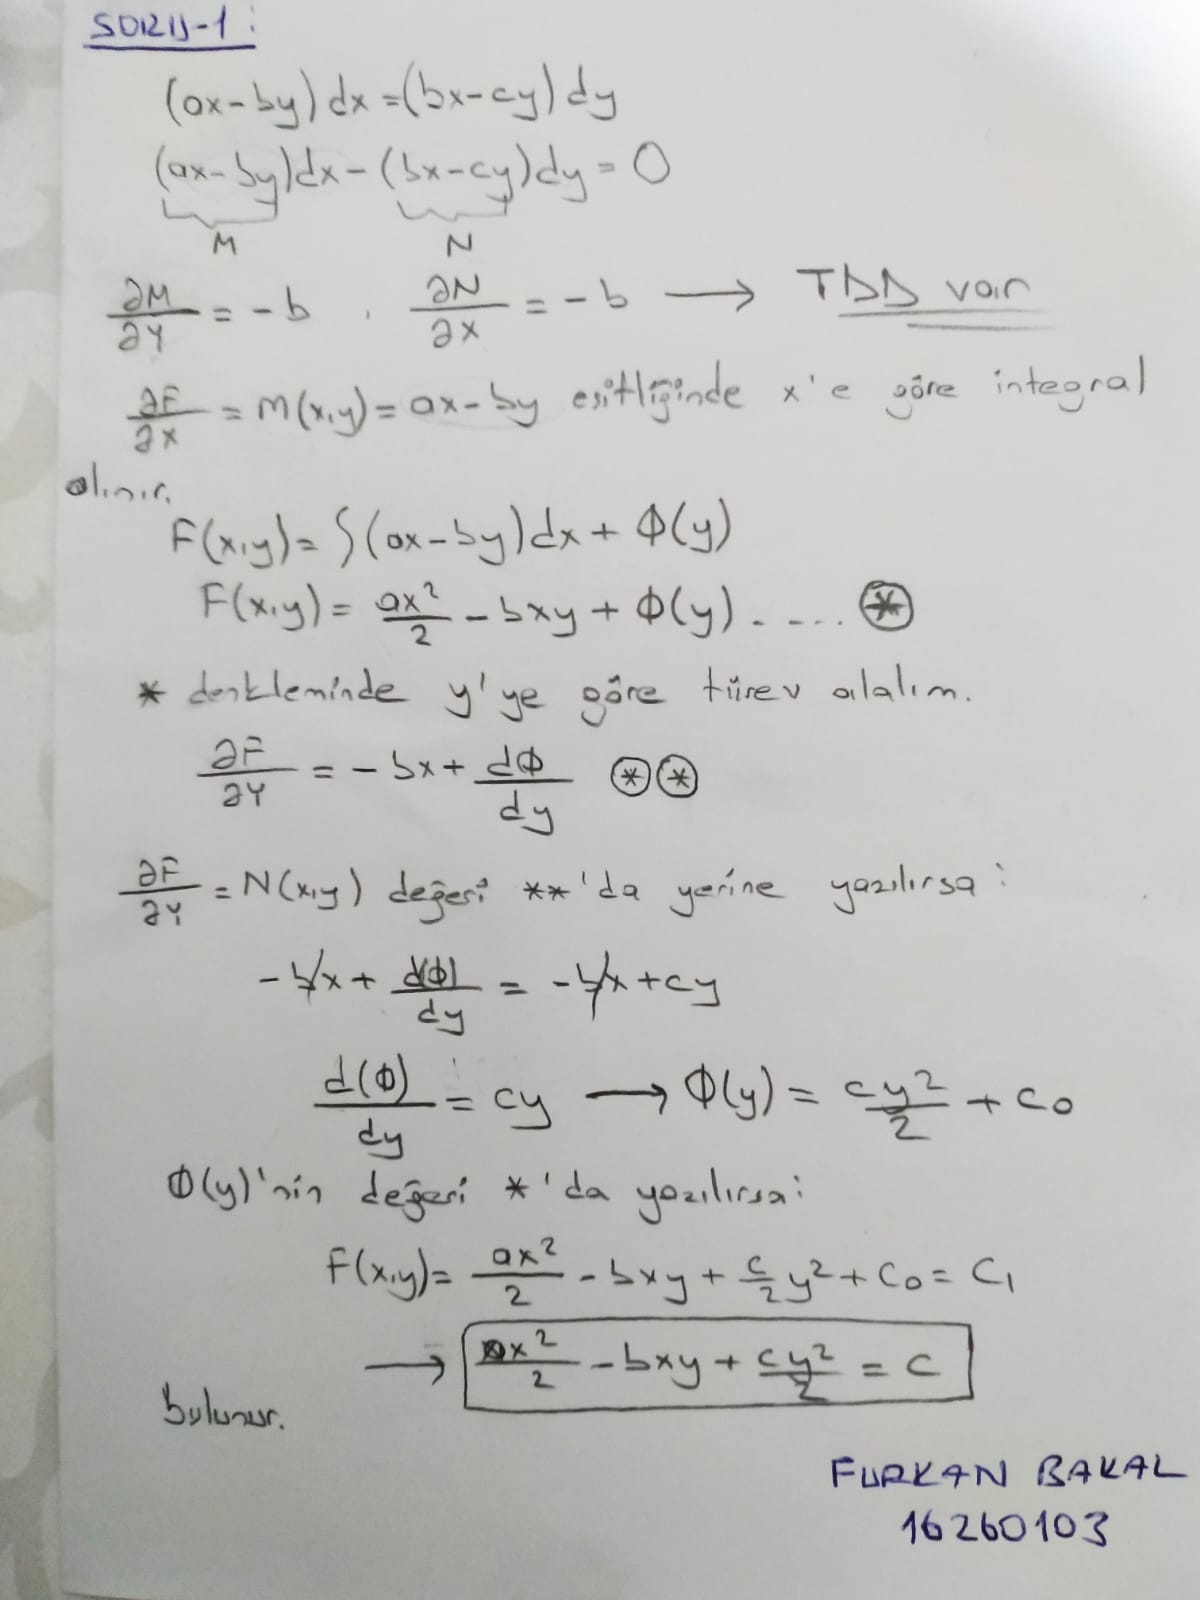 SORU-1:
(ax-by)dx=(bx-cy)dy
(ax-by)dx-(bx-cy)dy=0
M N
∂M/∂y = -b , ∂N/∂x = -b → TDD var
∂F/∂x = M(x,y)=ax-by eşitliğinde x'e göre integral
alınır.
F(x,y)=∫(ax-by)dx+Φ(y)
F(x,y)= ax²/2 - bxy+Φ(y)..... ⊛
* denkleminde y'ye göre türev alalım.
∂F/∂y = -bx+ dΦ/dy ⊛⊛
∂F/∂y = N(x,y) değeri **'da yerine yazılırsa:
-bx+ d(Φ)/dy = -bx+cy
d(Φ)/dy = cy → Φ(y)= cy²/2 + c₀
Φ(y)'nin değeri *'da yazılırsa:
F(x,y)= ax²/2 - bxy+ c/2 y²+c₀=c₁
→ ax²/2 - bxy+ cy²/2 = c
bulunur.
FURKAN BAKAL
16260103